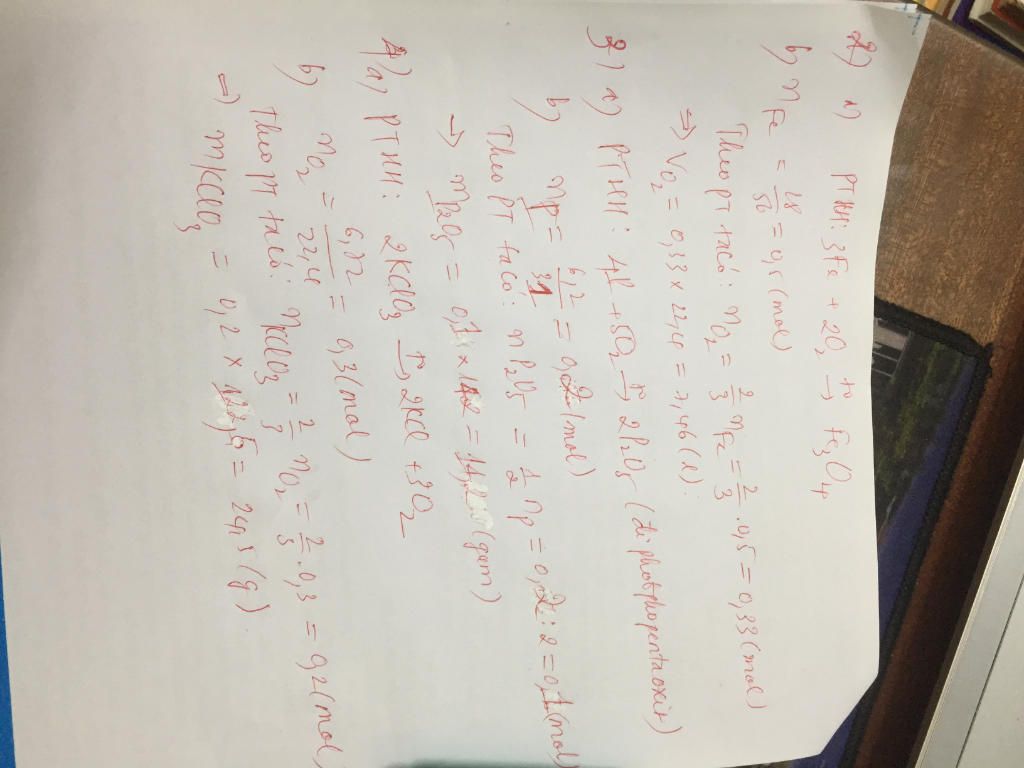 2) a) PTHH: 3Fe + 2O₂ →(t°) Fe₃O₄
b) nFe = 28/56 = 0,5 (mol)
Theo pt ta có: nO₂ = 2/3 nFe = 2/3 . 0,5 = 0,33 (mol)
=> VO₂ = 0,33 x 22,4 = 7,46 (l).
3) a) PTHH: 4P + 5O₂ →(t°) 2P₂O₅ (đi photpho pentaoxit)
b) nP = 6,2/31 = 0,2 (mol)
Theo PT ta có: nP₂O₅ = 1/2 nP = 0,2 : 2 = 0,1 (mol)
→ mP₂O₅ = 0,1 x 142 = 14,2 (gam)
4) a) PTHH: 2KClO₃ →(t°) 2KCl + 3O₂
b) nO₂ = 6,72/22,4 = 0,3 (mol)
Theo pt ta có: nKClO₃ = 2/3 nO₂ = 2/3 . 0,3 = 0,2 (mol)
=> mKClO₃ = 0,2 x 122,5 = 24,5 (g)